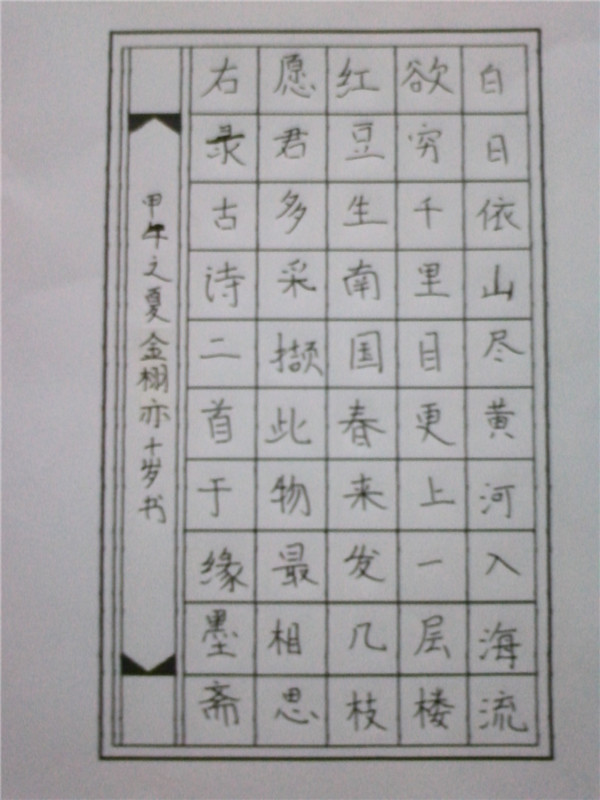 白日依山尽黄河入海流
欲穷千里目更上一层楼
红豆生南国春来发几枝
愿君多采撷此物最相思
右录古诗二首于缘墨斋
甲午之夏金栩亦十岁书